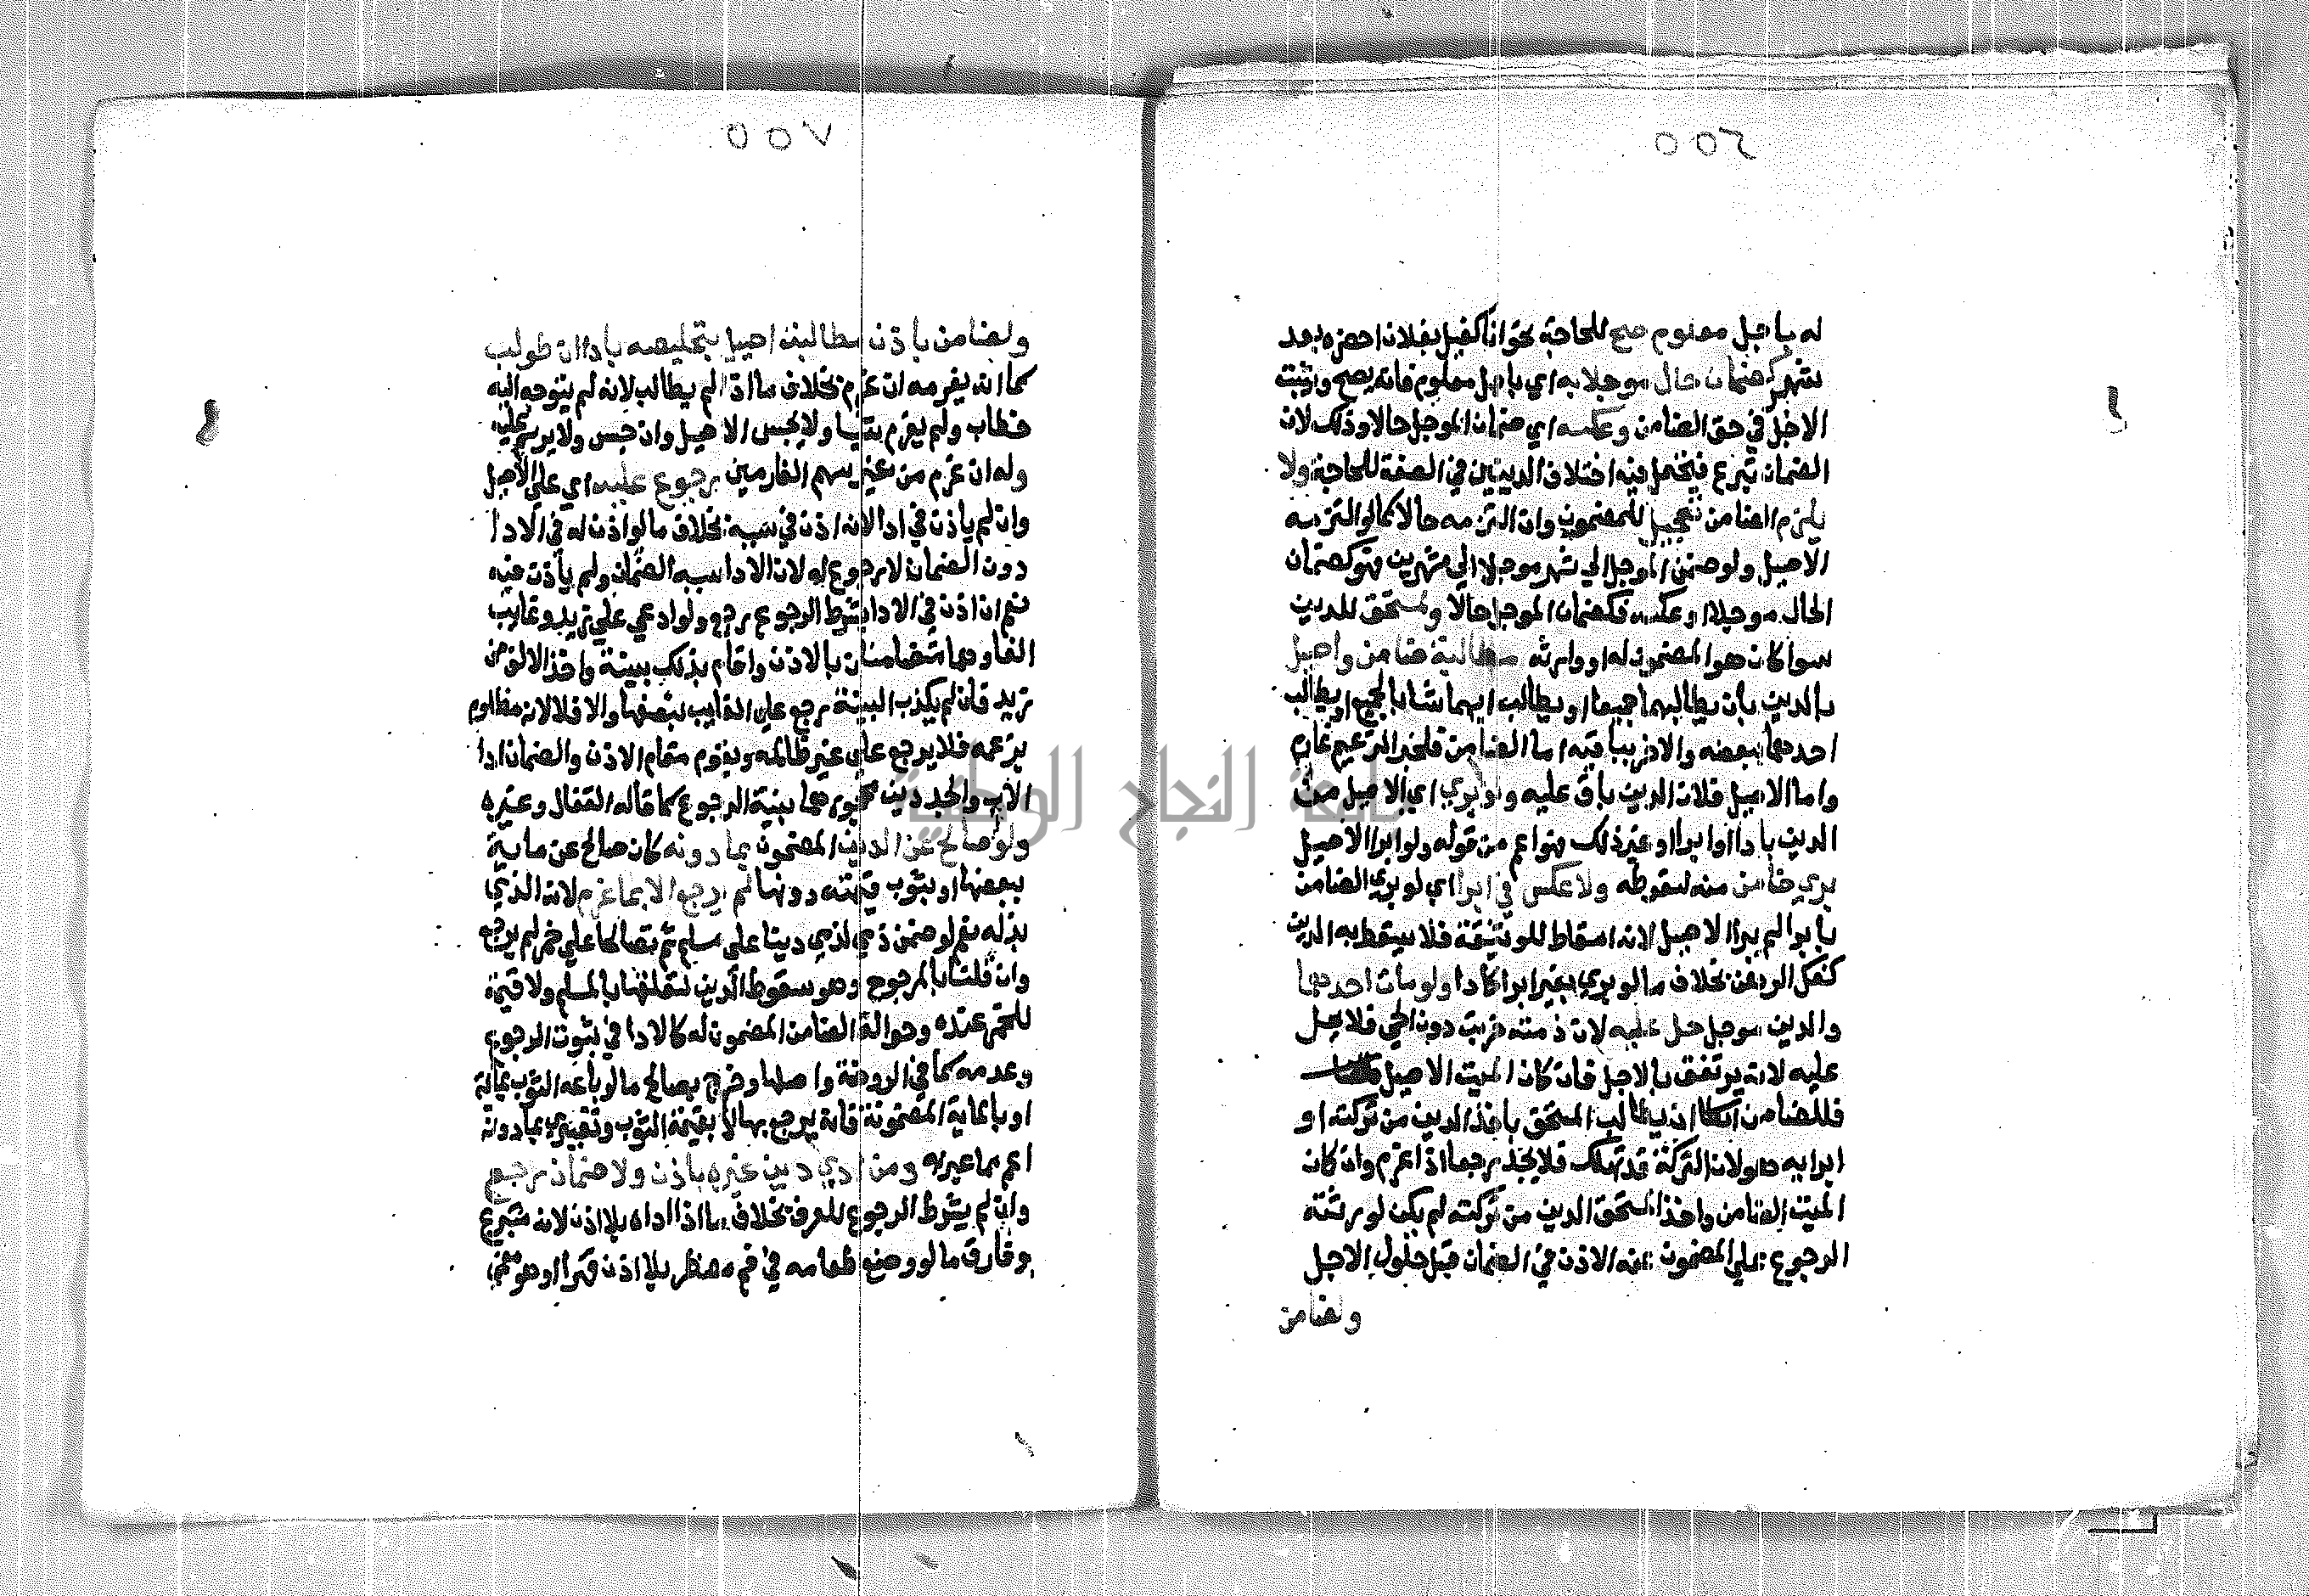 ٥٥٦
له باجل معلوم صح للحاجة نحو انا كفيل بفلان احضره بعد
شهر كضمان حال موجلا به اي باجل معلوم فانه يصح ويثبت
الاجل في حق الضامن وعكسه اي ضمان الموجل حالا وذلك لان
الضمان تبرع فيحتمل فيه اختلاف الدينين في الصفة للحاجة ولا
يلزم الضامن تعجيل للمضمون وان التزمه حالا كما لو التزمه
الاصيل ولو ضمن الموجل الي شهر موجلا الي شهرين فهو كضمان
الحال موجلا او عكسه فكضمان الموجل حالا ولمستحق للدين
سوا كان هو المضمون له او وارثه مطالبة ضامن واصيل
بالدين بان يطالبهما جميعا او يطالب ايهما شا بالجميع او يطالب
احدهما ببعضه والاخر بباقيه اما الضامن فلخبر الزعيم غارم
واما الاصيل فلان الدين باق عليه ولو بري اي الاصيل من
الدين بادا او ابرا او غير ذلك فهو اعم من قوله ولو ابرا الاصيل
بري ضامن منه لسقوطه ولا عكس في ابرا اي لو بري الضامن
بابرا لم يبرا الاصيل لانه اسقاط للوثيقة فلا يسقط به الدين
كفك الرهن بخلاف ما لو بري بغير ابرا كادا ولو مات احدهما
والدين موجل حل عليه لان ذمته خربت دون الحي فلا يحل
عليه لانه يرتفق بالاجل فان كان الميت الاصيل
فللضامن ان يطالب المستحق باخذ الدين من تركته او
ابرايه هو لان التركة قد تهلك فلا يجد مرجعا اذا غرم وان كان
الميت الضامن واخذ المستحق الدين من تركته لم يكن لورثته
الرجوع علي المضمون عنه الاذن في الضمان قبل حلول الاجل
ولضامن
٥٥٧
ولضامن باذن مطالبة اصيل بتخليصه بادا ان طولب
كما انه يغرمه ان غرم بخلاف ما اذا لم يطالب لانه لم يتوجه اليه
خطاب ولم يغرم شيا ولا يحبس الاصيل وان حبس ولا يرسم عليه
وله ان غرم من غير سهم الغارمين رجوع عليه اي علي الاصيل
وان لم ياذن في ادا لانه اذن في سببه بخلاف ما لو اذن له في الادا
دون الضمان لا رجوع له لان الادا سببه الضمان ولم ياذن فيه
نعم ان اذن في الادا بشرط الرجوع رجع ولو ادعي علي زيد وغايب
الفا وهما متضامنان بالاذن واقام بذلك بينة واخذ الالف من
زيد فان لم يكذب البينة رجع علي الغايب بنصفها والا فلا لانه مظلوم
بزعمه فلا يرجع علي غير ظالمه ويقوم مقام الاذن والضمان ادا
الاب والجد دين محجورهما بنية الرجوع كما قاله القفال وغيره
ولو صالح عن الدين المضمون بما دونه كان صالح عن ماية
ببعضها او بثوب قيمته دونها لم يرجع الا بما غرم لانه الذي
بذله نعم لو ضمن ذمي لذمي دينا علي مسلم ثم تصالحا علي خمر لم يرجع
وان قلنا بالمرجوح وهو سقوط الدين لتعلقها بالمسلم ولا قيمة
للخمر عنده وحوالة الضامن المضمون له كالادا في ثبوت الرجوع
وعدمه كما في الروضة واصلها وخرج بصالح ما لو باعه الثوب بماية
او بالماية المضمونة فانه يرجع بها لا بقيمة الثوب وتعبيري بما دونه
اعم مما عبر به ومن ادي دين غيره باذن ولا ضمان رجع
وان لم يشرط الرجوع للعرف بخلاف ما اذا اداه بلا اذن لانه متبرع
وفارق ما لو وضع طعامه في فم مضطر بلا اذن قهرا او وهو مغمي
جامعة النجاح الوطنية